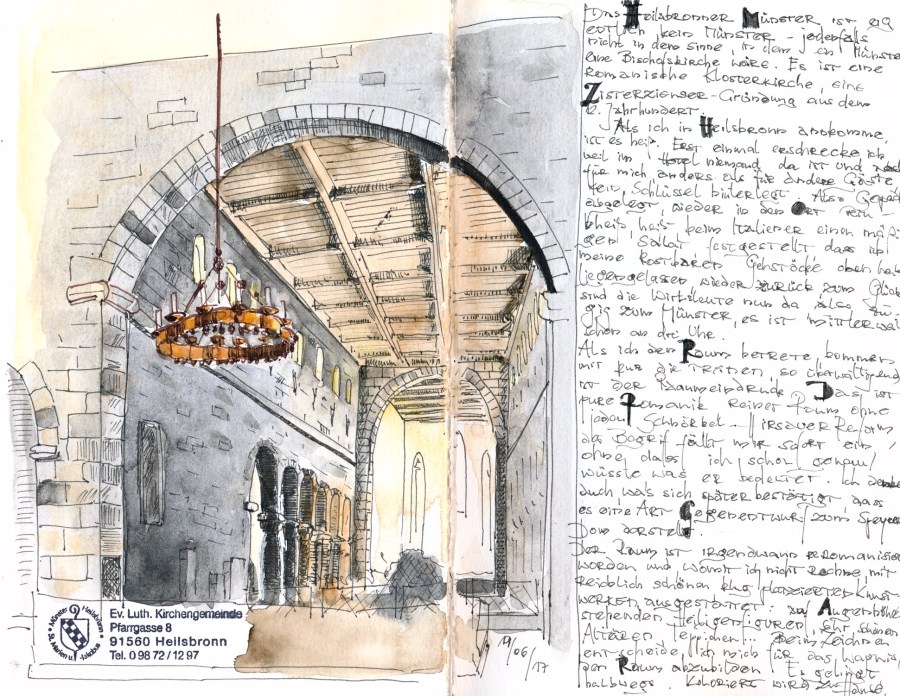 Das Heilsbronner Münster ist eig
entlich kein Münster – jedenfalls
nicht in dem Sinne, in dem ein Münster
eine Bischofskirche wäre. Es ist eine
romanische Klosterkirche, eine
Zisterzienser-Gründung aus dem
12. Jahrhundert.
Als ich in Heilsbronn ankomme,
ist es heiß. Erst einmal erschrecke ich
weil im Hotel niemand da ist und
für mich anders als für andere Gäste
kein Schlüssel hinterlegt. Also Gepäck
abgelegt, wieder in den Ort rein
heiß, heiß beim Italiener einen mäßi
gen Salat festgestellt dass ich
meine kostbaren Gehstöcke oben habe
liegengelassen wieder zurück zum Glück
sind die Wirtsleute nun da also zu-
gig zum Münster, es ist mittlerweile
schon um drei Uhr.
Als ich den Raum betrete kommen
mir fast die Tränen, so überwältigend
ist der Raumeindruck. Das ist
pure Romanik reiner Raum ohne
jeden Schnörkel – Hirsauer Reform
der Begriff fällt mir sofort ein,
ohne dass ich schon genau
wüsste was er bedeutet. Ich
auch was sich später bestätigt, dass
es eine Art Gegenentwurf zum Speyerer
Dom darstellt.
Der Raum ist irgendwann reromanisiert
worden und womit ich nicht rechne, mit
reichlich schönen klug platzierten Kunst-
werken ausgestattet: Augenhöhe
stehenden Heiligenfiguren, sehr schönen
Altären, Teppichen... Beim Zeichnen
entscheide ich mich für das Wagnis,
den Raum abzubilden. Es gelingt
halbwegs. Koloriert wird
Münster Heilsbronn
St. Marien u. Jakobus
Ev. Luth. Kirchengemeinde
Pfarrgasse 8
91560 Heilsbronn
Tel. 0 98 72 / 12 97
19/06/17